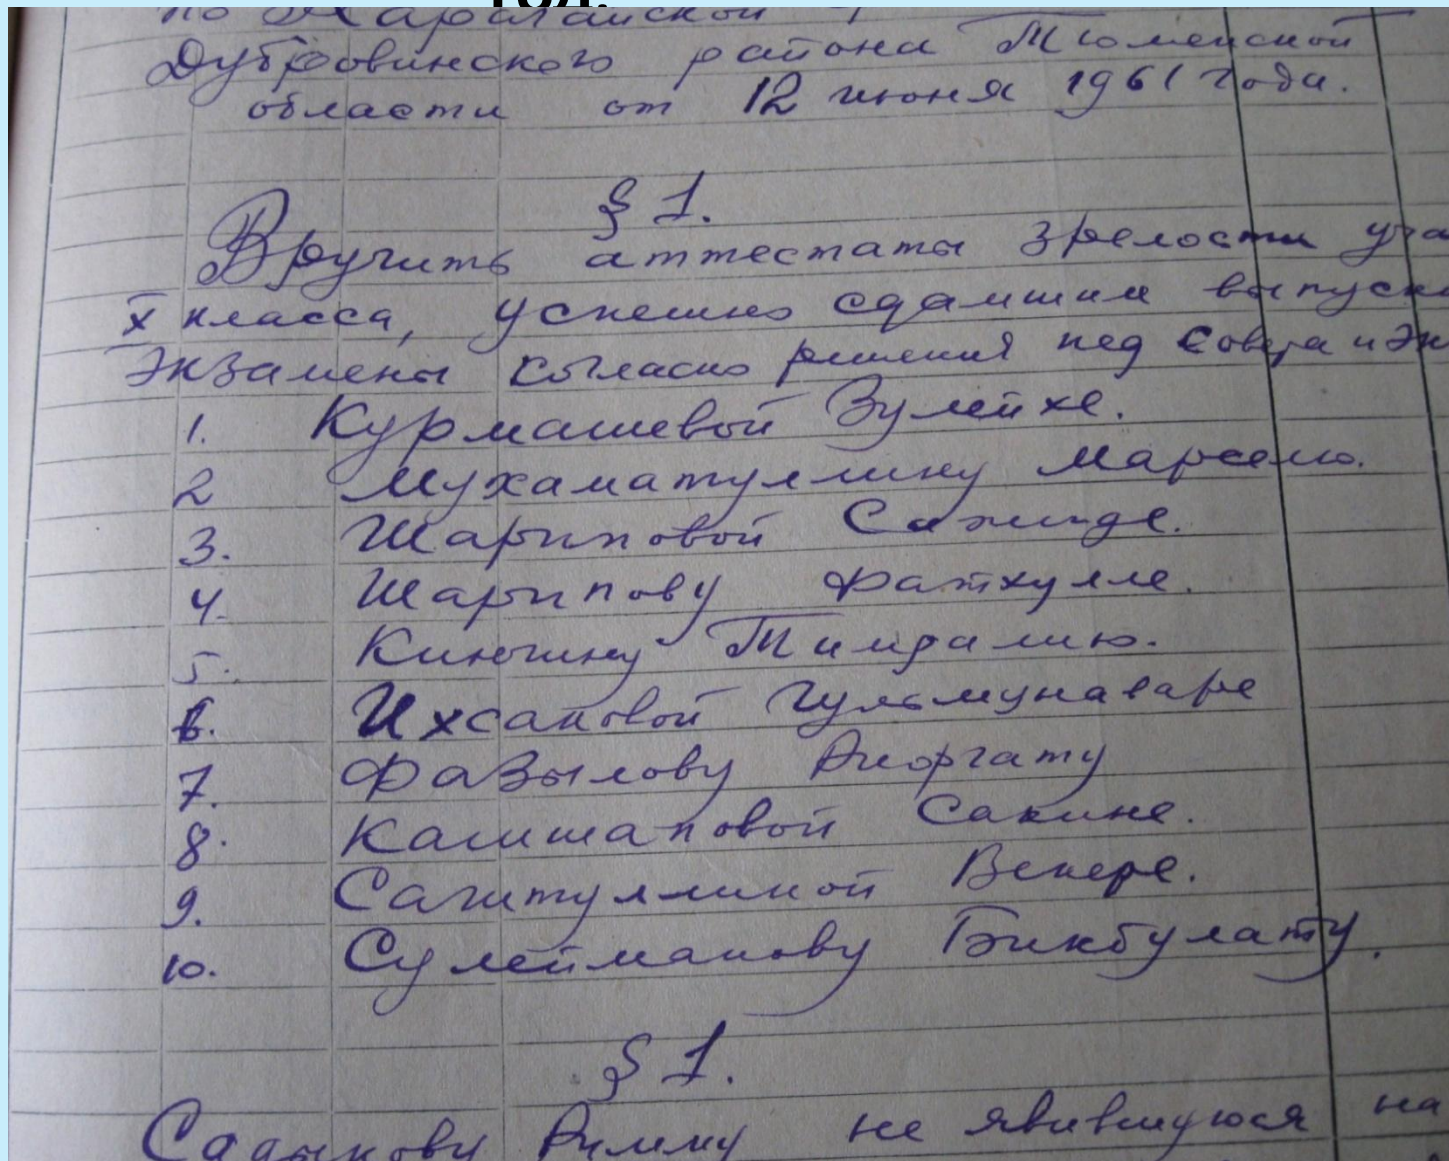 год.
по Карагайской
Дубровинского района Тюменской
области от 12 июня 1961 года.
§ 1.
Вручить аттестаты зрелости уча
X класса, успешно сдавшим выпускн
экзамены согласно решения пед совета и эк
1. Курмашевой Зулейхе.
2 Мухаматуллину Марселю.
3. Шариповой Сажиде.
4. Шарипову Фатхулле.
5. Кинчину Тимралию.
6. Ихсановой Гульмунаваре
7. Фазылову
8. Калишаповой Сакине.
9. Сагитуллиной Венере.
10. Сулейманову Бикбулату.
§ 1.
Садыкову Римму не явившуюся на